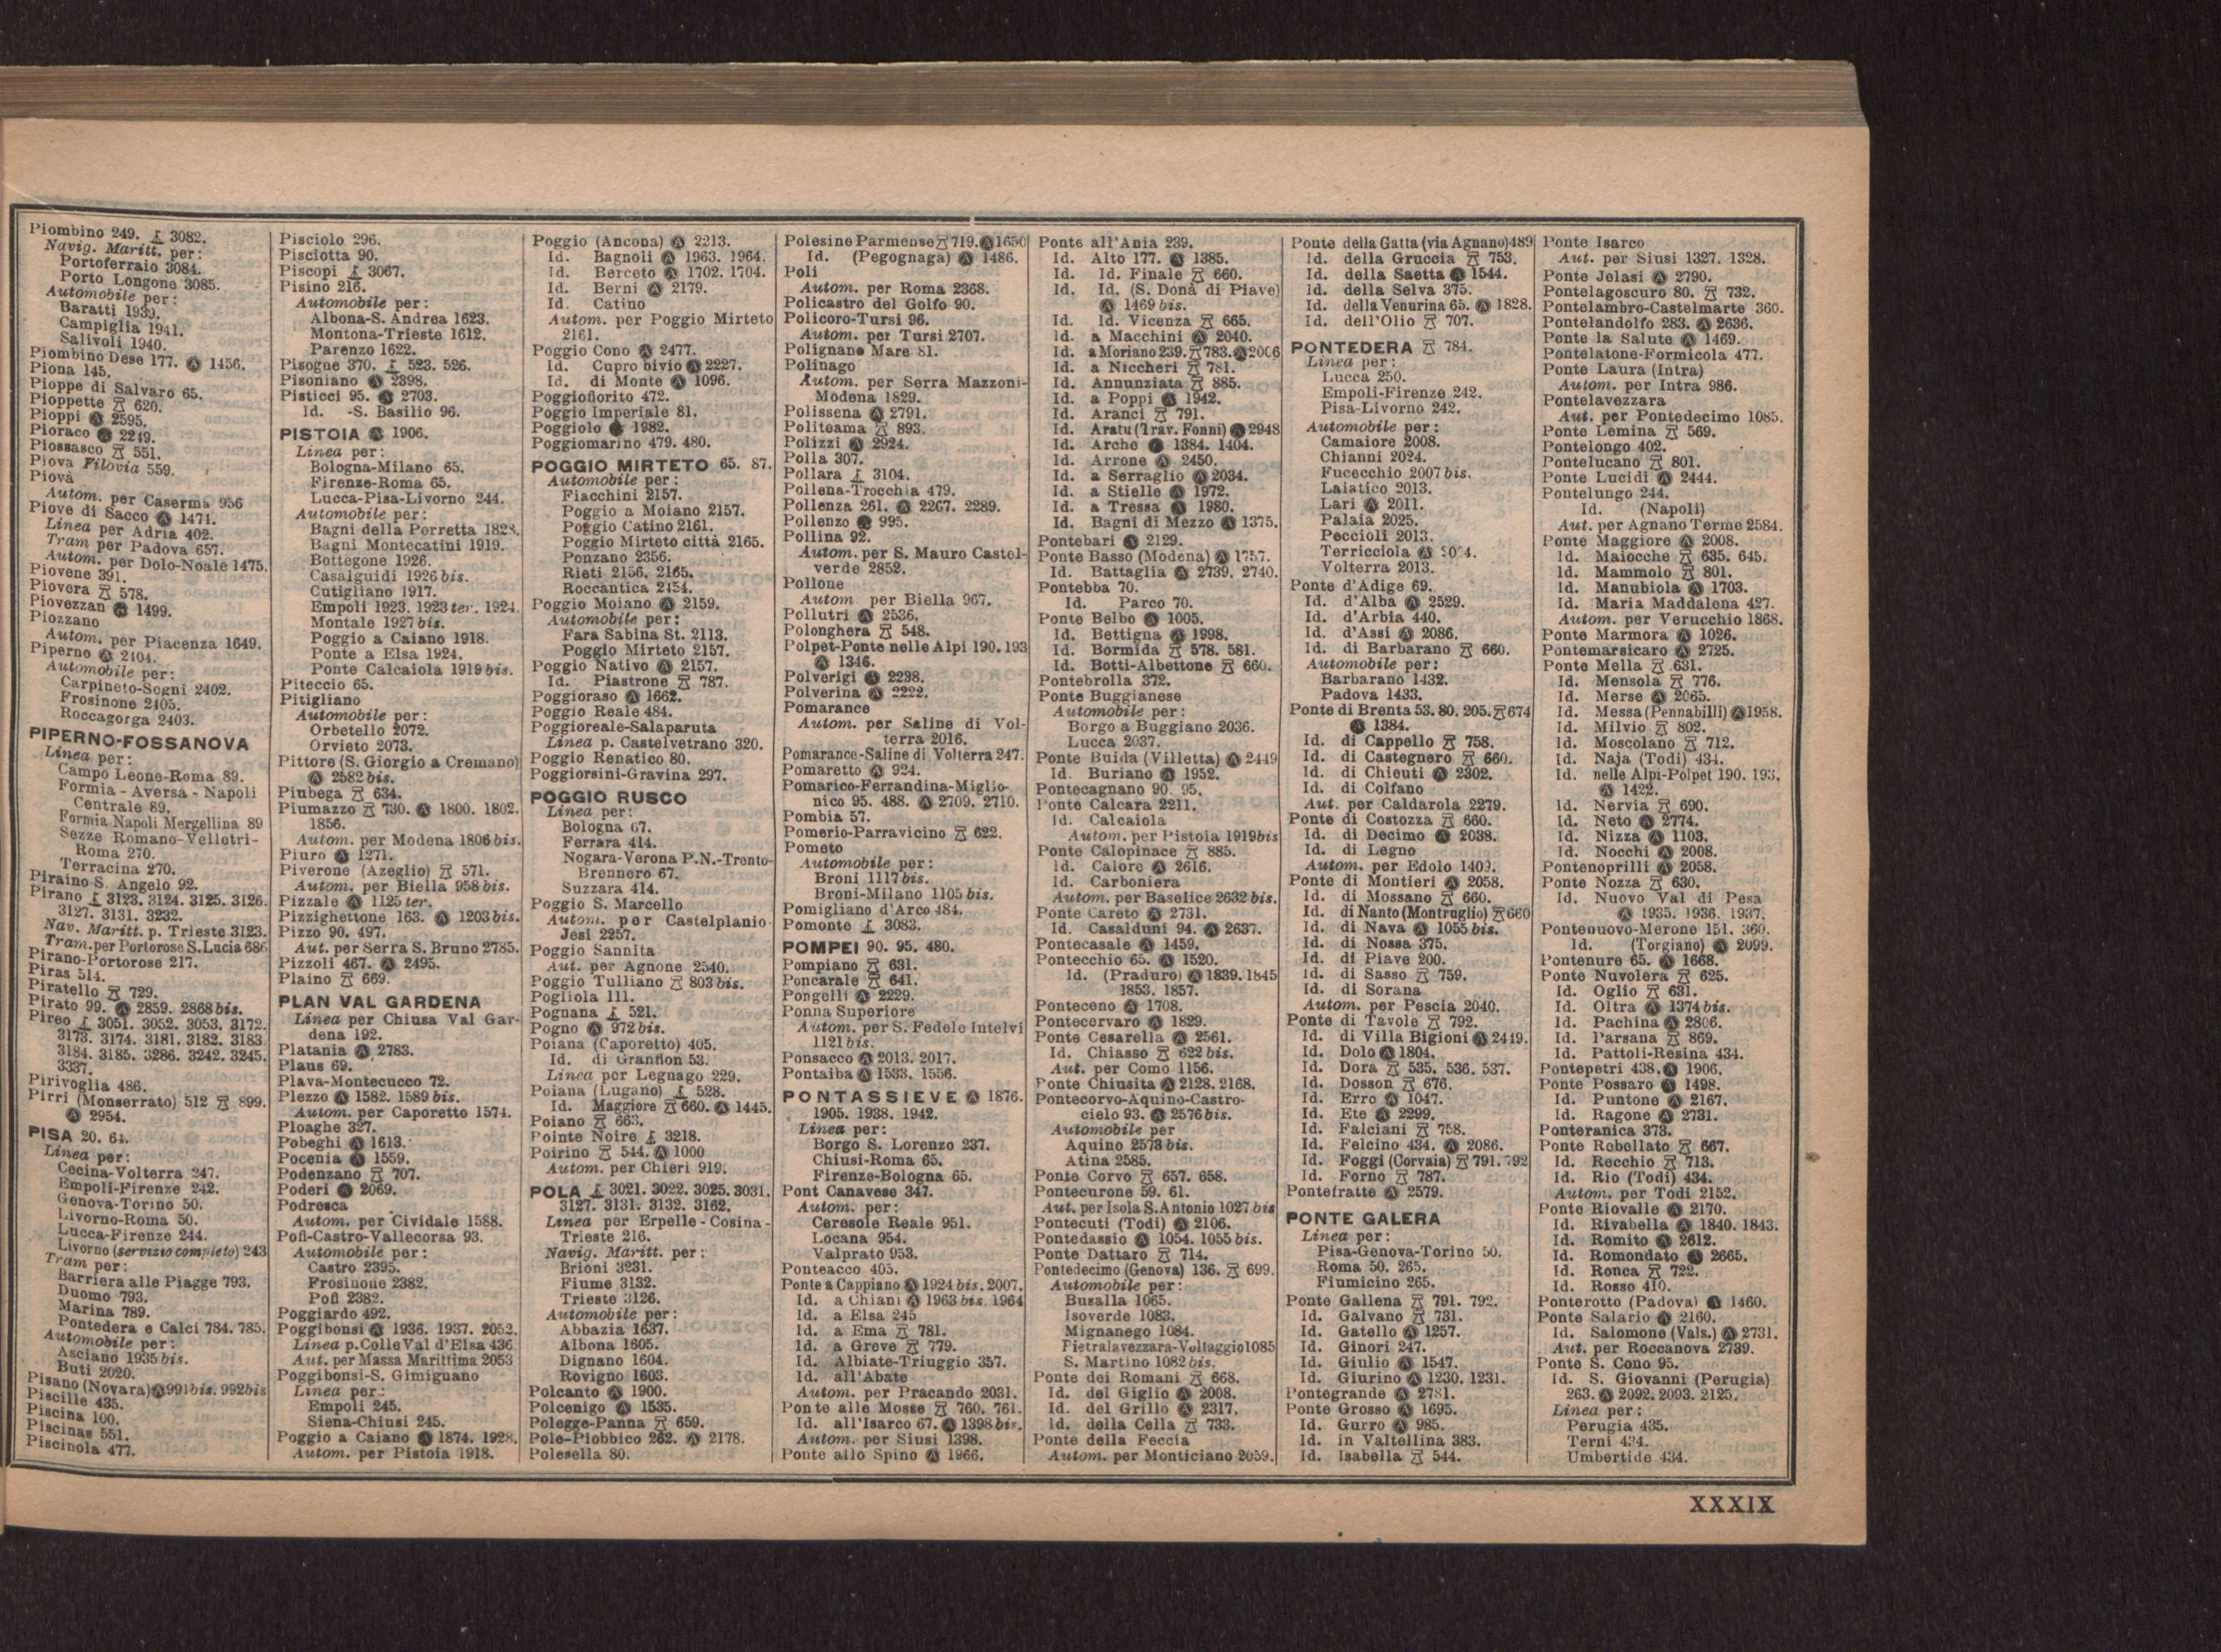 Piombino 249. 3082.
Navig. Maritt. per:
Portoferraio 3084.
Porto Longone 3085.
Automobile per:
Baratti 1939.
Campiglia 1941.
Salivoli 1940.
Piombino Dese 177. Ⓐ 1456.
Piona 145.
Pioppe di Salvaro 65.
Pioppette 620.
Pioppi Ⓐ 2595.
Pioraco Ⓐ 2249.
Piossasco 551.
Piova Filovia 559.
Piovà
Autom. per Caserma 956
Piove di Sacco Ⓐ 1474.
Linea per Adria 402.
Tram per Padova 657.
Autom. per Dolo-Noale 1475.
Piovene 391.
Piovera 578.
Piovezzan Ⓐ 1499.
Piozzano
Autom. per Piacenza 1649.
Piperno Ⓐ 2404.
Automobile per:
Carpineto-Segni 2402.
Frosinone 2405.
Roccagorga 2403.
PIPERNO-FOSSANOVA
Linea per:
Campo Leone-Roma 89.
Formia - Aversa - Napoli
Centrale 89.
Formia Napoli Mergellina 89
Sezze Romano-Velletri-
Roma 270.
Terracina 270.
Piraino S. Angelo 92.
Pirano 3123. 3124. 3125. 3126.
3127. 3131. 3232.
Nav. Maritt. p. Trieste 3123.
Tram. per Portorose S. Lucia 686
Pirano-Portorose 217.
Piras 514.
Piratello 729.
Pirato 99. Ⓐ 2859. 2868 bis.
Pireo 3051. 3052. 3053. 3172.
3173. 3174. 3181. 3182. 3183
3184. 3185. 3286. 3242. 3245.
3337.
Pirivoglia 486.
Pirri (Monserrato) 512 899.
Ⓐ 2954.
PISA 20. 64.
Linea per:
Cecina-Volterra 247.
Empoli-Firenze 242.
Genova-Torino 50.
Livorno-Roma 50.
Lucca-Firenze 244.
Livorno (servizio completo) 243
Tram per:
Barriera alle Piagge 793.
Duomo 793.
Marina 789.
Pontedera e Calci 784. 785.
Automobile per:
Asciano 1935 bis.
Buti 2020.
Pisano (Novara) Ⓐ 991 bis. 992 bis
Piscille 435.
Piscina 100.
Piscinas 551.
Piscinola 477.
Pisciolo 296.
Pisciotta 90.
Piscopi 3067.
Pisino 216.
Automobile per:
Albona-S. Andrea 1623.
Montona-Trieste 1612.
Parenzo 1622.
Pisogne 370. 523. 526.
Pisoniano Ⓐ 2398.
Pisticci 95. Ⓐ 2703.
Id. -S. Basilio 96.
PISTOIA Ⓐ 1906.
Linea per:
Bologna-Milano 65.
Firenze-Roma 65.
Lucca-Pisa-Livorno 244.
Automobile per:
Bagni della Porretta 1828.
Bagni Montecatini 1919.
Bottegone 1926.
Casalguidi 1926 bis.
Cutigliano 1917.
Empoli 1923. 1923 ter. 1924.
Montale 1927 bis.
Poggio a Caiano 1918.
Ponte a Elsa 1924.
Ponte Calcaiola 1919 bis.
Piteccio 65.
Pitigliano
Automobile per:
Orbetello 2072.
Orvieto 2073.
Pittore (S. Giorgio a Cremano)
Ⓐ 2582 bis.
Piubega 634.
Piumazzo 730. Ⓐ 1800. 1802.
1856.
Autom. per Modena 1806 bis.
Piuro Ⓐ 1271.
Piverone (Azeglio) 571.
Autom. per Biella 958 bis.
Pizzale Ⓐ 1125 ter.
Pizzighettone 163. Ⓐ 1203 bis.
Pizzo 90. 497.
Aut. per Serra S. Bruno 2785.
Pizzoli 467. Ⓐ 2495.
Plaino 669.
PLAN VAL GARDENA
Linea per Chiusa Val Gar-
dena 192.
Platania Ⓐ 2783.
Plaus 69.
Plava-Montecucco 72.
Plezzo Ⓐ 1582. 1589 bis.
Autom. per Caporetto 1574.
Ploaghe 327.
Pobeghi Ⓐ 1613.
Pocenia Ⓐ 1559.
Podenzano 707.
Poderi Ⓐ 2069.
Podresca
Autom. per Cividale 1588.
Pofi-Castro-Vallecorsa 93.
Automobile per:
Castro 2395.
Frosinone 2382.
Pofi 2382.
Poggiardo 492.
Poggibonsi Ⓐ 1936. 1937. 2052.
Linea p. Colle Val d'Elsa 436
Aut. per Massa Marittima 2053
Poggibonsi-S. Gimignano
Linea per:
Empoli 245.
Siena-Chiusi 245.
Poggio a Caiano Ⓐ 1874. 1928.
Autom. per Pistoia 1918.
Poggio (Ancona) Ⓐ 2213.
Id. Bagnoli Ⓐ 1963. 1964.
Id. Berceto Ⓐ 1702. 1704.
Id. Berni Ⓐ 2179.
Id. Catino
Autom. per Poggio Mirteto
2161.
Poggio Cono Ⓐ 2477.
Id. Cupro bivio Ⓐ 2227.
Id. di Monte Ⓐ 1096.
Poggiofiorito 472.
Poggio Imperiale 81.
Poggiolo Ⓐ 1982.
Poggiomarino 479. 480.
POGGIO MIRTETO 65. 87.
Automobile per:
Fiacchini 2157.
Poggio a Moiano 2157.
Poggio Catino 2161.
Poggio Mirteto città 2165.
Ponzano 2356.
Rieti 2156. 2165.
Roccantica 2154.
Poggio Moiano Ⓐ 2159.
Automobile per:
Fara Sabina St. 2113.
Poggio Mirteto 2157.
Poggio Nativo Ⓐ 2157.
Id. Piastrone 787.
Poggioraso Ⓐ 1662.
Poggio Reale 484.
Poggioreale-Salaparuta
Linea p. Castelvetrano 320.
Poggio Renatico 80.
Poggiorsini-Gravina 297.
POGGIO RUSCO
Linea per:
Bologna 67.
Ferrara 414.
Nogara-Verona P.N.-Trento-
Brennero 67.
Suzzara 414.
Poggio S. Marcello
Autom. per Castelplanio-
Jesi 2257.
Poggio Sannita
Aut. per Agnone 2540.
Poggio Tulliano 803 bis.
Pogliola 111.
Pognana 521.
Pogno Ⓐ 972 bis.
Poiana (Caporetto) 405.
Id. di Granfion 53.
Linea per Legnago 229.
Poiana (Lugano) 528.
Id. Maggiore 660. Ⓐ 1445.
Poiano 663.
Pointe Noire 3218.
Poirino 544. Ⓐ 1000
Autom. per Chieri 919.
POLA 3021. 3022. 3025. 3031.
3127. 3131. 3132. 3162.
Linea per Erpelle-Cosina-
Trieste 216.
Navig. Maritt. per:
Brioni 3231.
Fiume 3132.
Trieste 3126.
Automobile per:
Abbazia 1637.
Albona 1605.
Dignano 1604.
Rovigno 1603.
Polcanto Ⓐ 1900.
Polcenigo Ⓐ 1535.
Polegge-Panna 659.
Pole-Piobbico 262. Ⓐ 2178.
Polesella 80.
Polesine Parmense 719. Ⓐ 1650
Id. (Pegognaga) Ⓐ 1486.
Poli
Autom. per Roma 2368.
Policastro del Golfo 90.
Policoro-Tursi 96.
Autom. per Tursi 2707.
Polignano Mare 81.
Polinago
Autom. per Serra Mazzoni-
Modena 1829.
Polissena Ⓐ 2791.
Politeama 893.
Polizzi Ⓐ 2924.
Polla 307.
Pollara 3104.
Pollena-Trocchia 479.
Pollenza 261. Ⓐ 2267. 2289.
Pollenzo Ⓐ 995.
Pollina 92.
Autom. per S. Mauro Castel-
verde 2852.
Pollone
Autom per Biella 967.
Pollutri Ⓐ 2536.
Polonghera 548.
Polpet-Ponte nelle Alpi 190. 193
Ⓐ 1346.
Polverigi Ⓐ 2298.
Polverina Ⓐ 2222.
Pomarance
Autom. per Saline di Vol-
terra 2016.
Pomarance-Saline di Volterra 247.
Pomaretto Ⓐ 924.
Pomarico-Ferrandina-Miglio-
nico 95. 488. Ⓐ 2709. 2710.
Pombia 57.
Pomerio-Parravicino 622.
Pometo
Automobile per:
Broni 1117 bis.
Broni-Milano 1105 bis.
Pomigliano d'Arco 484.
Pomonte 3083.
POMPEI 90. 95. 480.
Pompiano 631.
Poncarale 641.
Pongelli Ⓐ 2229.
Ponna Superiore
Autom. per S. Fedele Intelvi
1121 bis.
Ponsacco Ⓐ 2013. 2017.
Pontaiba Ⓐ 1533. 1556.
PONTASSIEVE Ⓐ 1876.
1905. 1938. 1942.
Linea per:
Borgo S. Lorenzo 237.
Chiusi-Roma 65.
Firenze-Bologna 65.
Pont Canavese 347.
Autom. per:
Ceresole Reale 951.
Locana 954.
Valprato 953.
Ponteacco 405.
Ponte a Cappiano Ⓐ 1924 bis. 2007.
Id. a Chiani Ⓐ 1963 bis. 1964
Id. a Elsa 245
Id. a Ema 781.
Id. a Greve 779.
Id. Albiate-Triuggio 357.
Id. all'Abate
Autom. per Pracando 2031.
Ponte alle Mosse 760. 761.
Id. all'Isarco 67. Ⓐ 1398 bis.
Autom. per Siusi 1398.
Ponte allo Spino Ⓐ 1966.
Ponte all'Ania 239.
Id. Alto 177. Ⓐ 1385.
Id. Id. Finale 660.
Id. Id. (S. Donà di Piave)
Ⓐ 1469 bis.
Id. Id. Vicenza 665.
Id. a Macchini Ⓐ 2040.
Id. a Moriano 239. 783. Ⓐ 2006
Id. a Niccheri 781.
Id. Annunziata 885.
Id. a Poppi Ⓐ 1942.
Id. Aranci 791.
Id. Aratu (Trav. Fonni) Ⓐ 2948
Id. Arche Ⓐ 1384. 1404.
Id. Arrone Ⓐ 2450.
Id. a Serraglio Ⓐ 2034.
Id. a Stielle Ⓐ 1972.
Id. a Tressa Ⓐ 1980.
Id. Bagni di Mezzo Ⓐ 1375.
Pontebari Ⓐ 2129.
Ponte Basso (Modena) Ⓐ 1757.
Id. Battaglia Ⓐ 2739. 2740.
Pontebba 70.
Id. Parco 70.
Ponte Belbo Ⓐ 1005.
Id. Bettigna Ⓐ 1998.
Id. Bormida 578. 581.
Id. Botti-Albettone 660.
Pontebrolla 372.
Ponte Buggianese
Automobile per:
Borgo a Buggiano 2036.
Lucca 2037.
Ponte Buida (Villetta) Ⓐ 2449
Id. Buriano Ⓐ 1952.
Pontecagnano 90. 95.
Ponte Calcara 2211.
Id. Calcaiola
Autom. per Pistoia 1919 bis
Ponte Calopinace 885.
Id. Calore Ⓐ 2616.
Id. Carboniera
Autom. per Baselice 2632 bis.
Ponte Careto Ⓐ 2731.
Id. Casalduni 94. Ⓐ 2637.
Pontecasale Ⓐ 1459.
Pontecchio 65. Ⓐ 1520.
Id. (Praduro) Ⓐ 1839. 1845
1853. 1857.
Ponteceno Ⓐ 1708.
Pontecervaro Ⓐ 1829.
Ponte Cesarella Ⓐ 2561.
Id. Chiasso 622 bis.
Aut. per Como 1156.
Ponte Chiusita Ⓐ 2128. 2168.
Pontecorvo-Aquino-Castro-
cielo 93. Ⓐ 2576 bis.
Automobile per
Aquino 2573 bis.
Atina 2585.
Ponte Corvo 657. 658.
Pontecurone 59. 61.
Aut. per Isola S. Antonio 1027 bis
Pontecuti (Todi) Ⓐ 2106.
Pontedassio Ⓐ 1054. 1055 bis.
Ponte Dattaro 714.
Pontedecimo (Genova) 136. 699.
Automobile per:
Busalla 1065.
Isoverde 1083.
Mignanego 1084.
Pietralavezzara-Voltaggio 1085
S. Martino 1082 bis.
Ponte dei Romani 668.
Id. del Giglio Ⓐ 2008.
Id. del Grillo Ⓐ 2317.
Id. della Cella 733.
Ponte della Feccia
Autom. per Monticiano 2059.
Ponte della Gatta (via Agnano) 489
Id. della Gruccia 753.
Id. della Saetta Ⓐ 1544.
Id. della Selva 375.
Id. della Venurina 65. Ⓐ 1828.
Id. dell'Olio 707.
PONTEDERA 784.
Linea per:
Lucca 250.
Empoli-Firenze 242.
Pisa-Livorno 242.
Automobile per:
Camaiore 2008.
Chianni 2024.
Fucecchio 2007 bis.
Laiatico 2013.
Lari Ⓐ 2011.
Palaia 2025.
Peccioli 2013.
Terricciola Ⓐ
Volterra 2013.
Ponte d'Adige 69.
Id. d'Alba Ⓐ 2529.
Id. d'Arbia 440.
Id. d'Assi Ⓐ 2086.
Id. di Barbarano 660.
Automobile per:
Barbarano 1432.
Padova 1433.
Ponte di Brenta 53. 80. 205. 674
Ⓐ 1384.
Id. di Cappello 758.
Id. di Castegnero 660.
Id. di Chieuti Ⓐ 2302.
Id. di Colfano
Aut. per Caldarola 2279.
Ponte di Costozza 660.
Id. di Decimo Ⓐ 2038.
Id. di Legno
Autom. per Edolo 1409.
Ponte di Montieri Ⓐ 2058.
Id. di Mossano 660.
Id. di Nanto (Montruglio) 660
Id. di Nava Ⓐ 1055 bis.
Id. di Nossa 375.
Id. di Piave 200.
Id. di Sasso 759.
Id. di Sorana
Autom. per Pescia 2040.
Ponte di Tavole 792.
Id. di Villa Bigioni Ⓐ 2449.
Id. Dolo Ⓐ 1804.
Id. Dora 535. 536. 537.
Id. Dosson 676.
Id. Erro Ⓐ 1047.
Id. Ete Ⓐ 2299.
Id. Falciani 758.
Id. Felcino 434. Ⓐ 2086.
Id. Foggi (Corvaia) 791. 792
Id. Forno 787.
Pontefratte Ⓐ 2579.
PONTE GALERA
Linea per:
Pisa-Genova-Torino 50.
Roma 50. 265.
Fiumicino 265.
Ponte Gallena 791. 792.
Id. Galvano 731.
Id. Gatello Ⓐ 1257.
Id. Ginori 247.
Id. Giulio Ⓐ 1547.
Id. Giurino Ⓐ 1230. 1231.
Pontegrande Ⓐ 2781.
Ponte Grosso Ⓐ 1695.
Id. Gurro Ⓐ 985.
Id. in Valtellina 383.
Id. Isabella 544.
Ponte Isarco
Aut. per Siusi 1327. 1328.
Ponte Jelasi Ⓐ 2790.
Pontelagoscuro 80. 732.
Pontelambro-Castelmarte 360.
Pontelandolfo 283. Ⓐ 2636.
Ponte la Salute Ⓐ 1469.
Pontelatone-Formicola 477.
Ponte Laura (Intra)
Autom. per Intra 986.
Pontelavezzara
Aut. per Pontedecimo 1085.
Ponte Lemina 569.
Pontelongo 402.
Pontelucano 801.
Ponte Lucidi Ⓐ 2444.
Pontelungo 244.
Id. (Napoli)
Aut. per Agnano Terme 2584.
Ponte Maggiore Ⓐ 2008.
Id. Maiocche 635. 645.
Id. Mammolo 801.
Id. Manubiola Ⓐ 1703.
Id. Maria Maddalena 427.
Autom. per Verucchio 1868.
Ponte Marmora Ⓐ 1026.
Pontemarsicaro Ⓐ 2725.
Ponte Mella 631.
Id. Mensola 776.
Id. Merse Ⓐ 2065.
Id. Messa (Pennabilli) Ⓐ 1958.
Id. Milvio 802.
Id. Moscolano 712.
Id. Naja (Todi) 434.
Id. nelle Alpi-Polpet 190. 193.
Ⓐ 1422.
Id. Nervia 690.
Id. Neto Ⓐ 2774.
Id. Nizza Ⓐ 1103.
Id. Nocchi Ⓐ 2008.
Pontenoprilli Ⓐ 2058.
Ponte Nozza 630.
Id. Nuovo Val di Pesa
Ⓐ 1935. 1936. 1937.
Pontenuovo-Merone 151. 360.
Id. (Torgiano) Ⓐ 2099.
Pontenure 65. Ⓐ 1668.
Ponte Nuvolera 625.
Id. Oglio 631.
Id. Oltra Ⓐ 1374 bis.
Id. Pachina Ⓐ 2806.
Id. Parsana 869.
Id. Pattoli-Resina 434.
Pontepetri 438. Ⓐ 1906.
Ponte Possaro Ⓐ 1498.
Id. Puntone Ⓐ 2167.
Id. Ragone Ⓐ 2731.
Ponteranica 373.
Ponte Rebellato 667.
Id. Recchio 713.
Id. Rio (Todi) 434.
Autom. per Todi 2152.
Ponte Riovalle Ⓐ 2170.
Id. Rivabella Ⓐ 1840. 1843.
Id. Romito Ⓐ 2612.
Id. Romondato Ⓐ 2665.
Id. Ronca 722.
Id. Rosso 410.
Ponterotto (Padova) Ⓐ 1460.
Ponte Salario Ⓐ 2160.
Id. Salomone (Vals.) Ⓐ 2731.
Aut. per Roccanova 2739.
Ponte S. Cono 95.
Id. S. Giovanni (Perugia)
263. Ⓐ 2092. 2093. 2125.
Linea per:
Perugia 435.
Terni 434.
Umbertide 434.
XXXIX